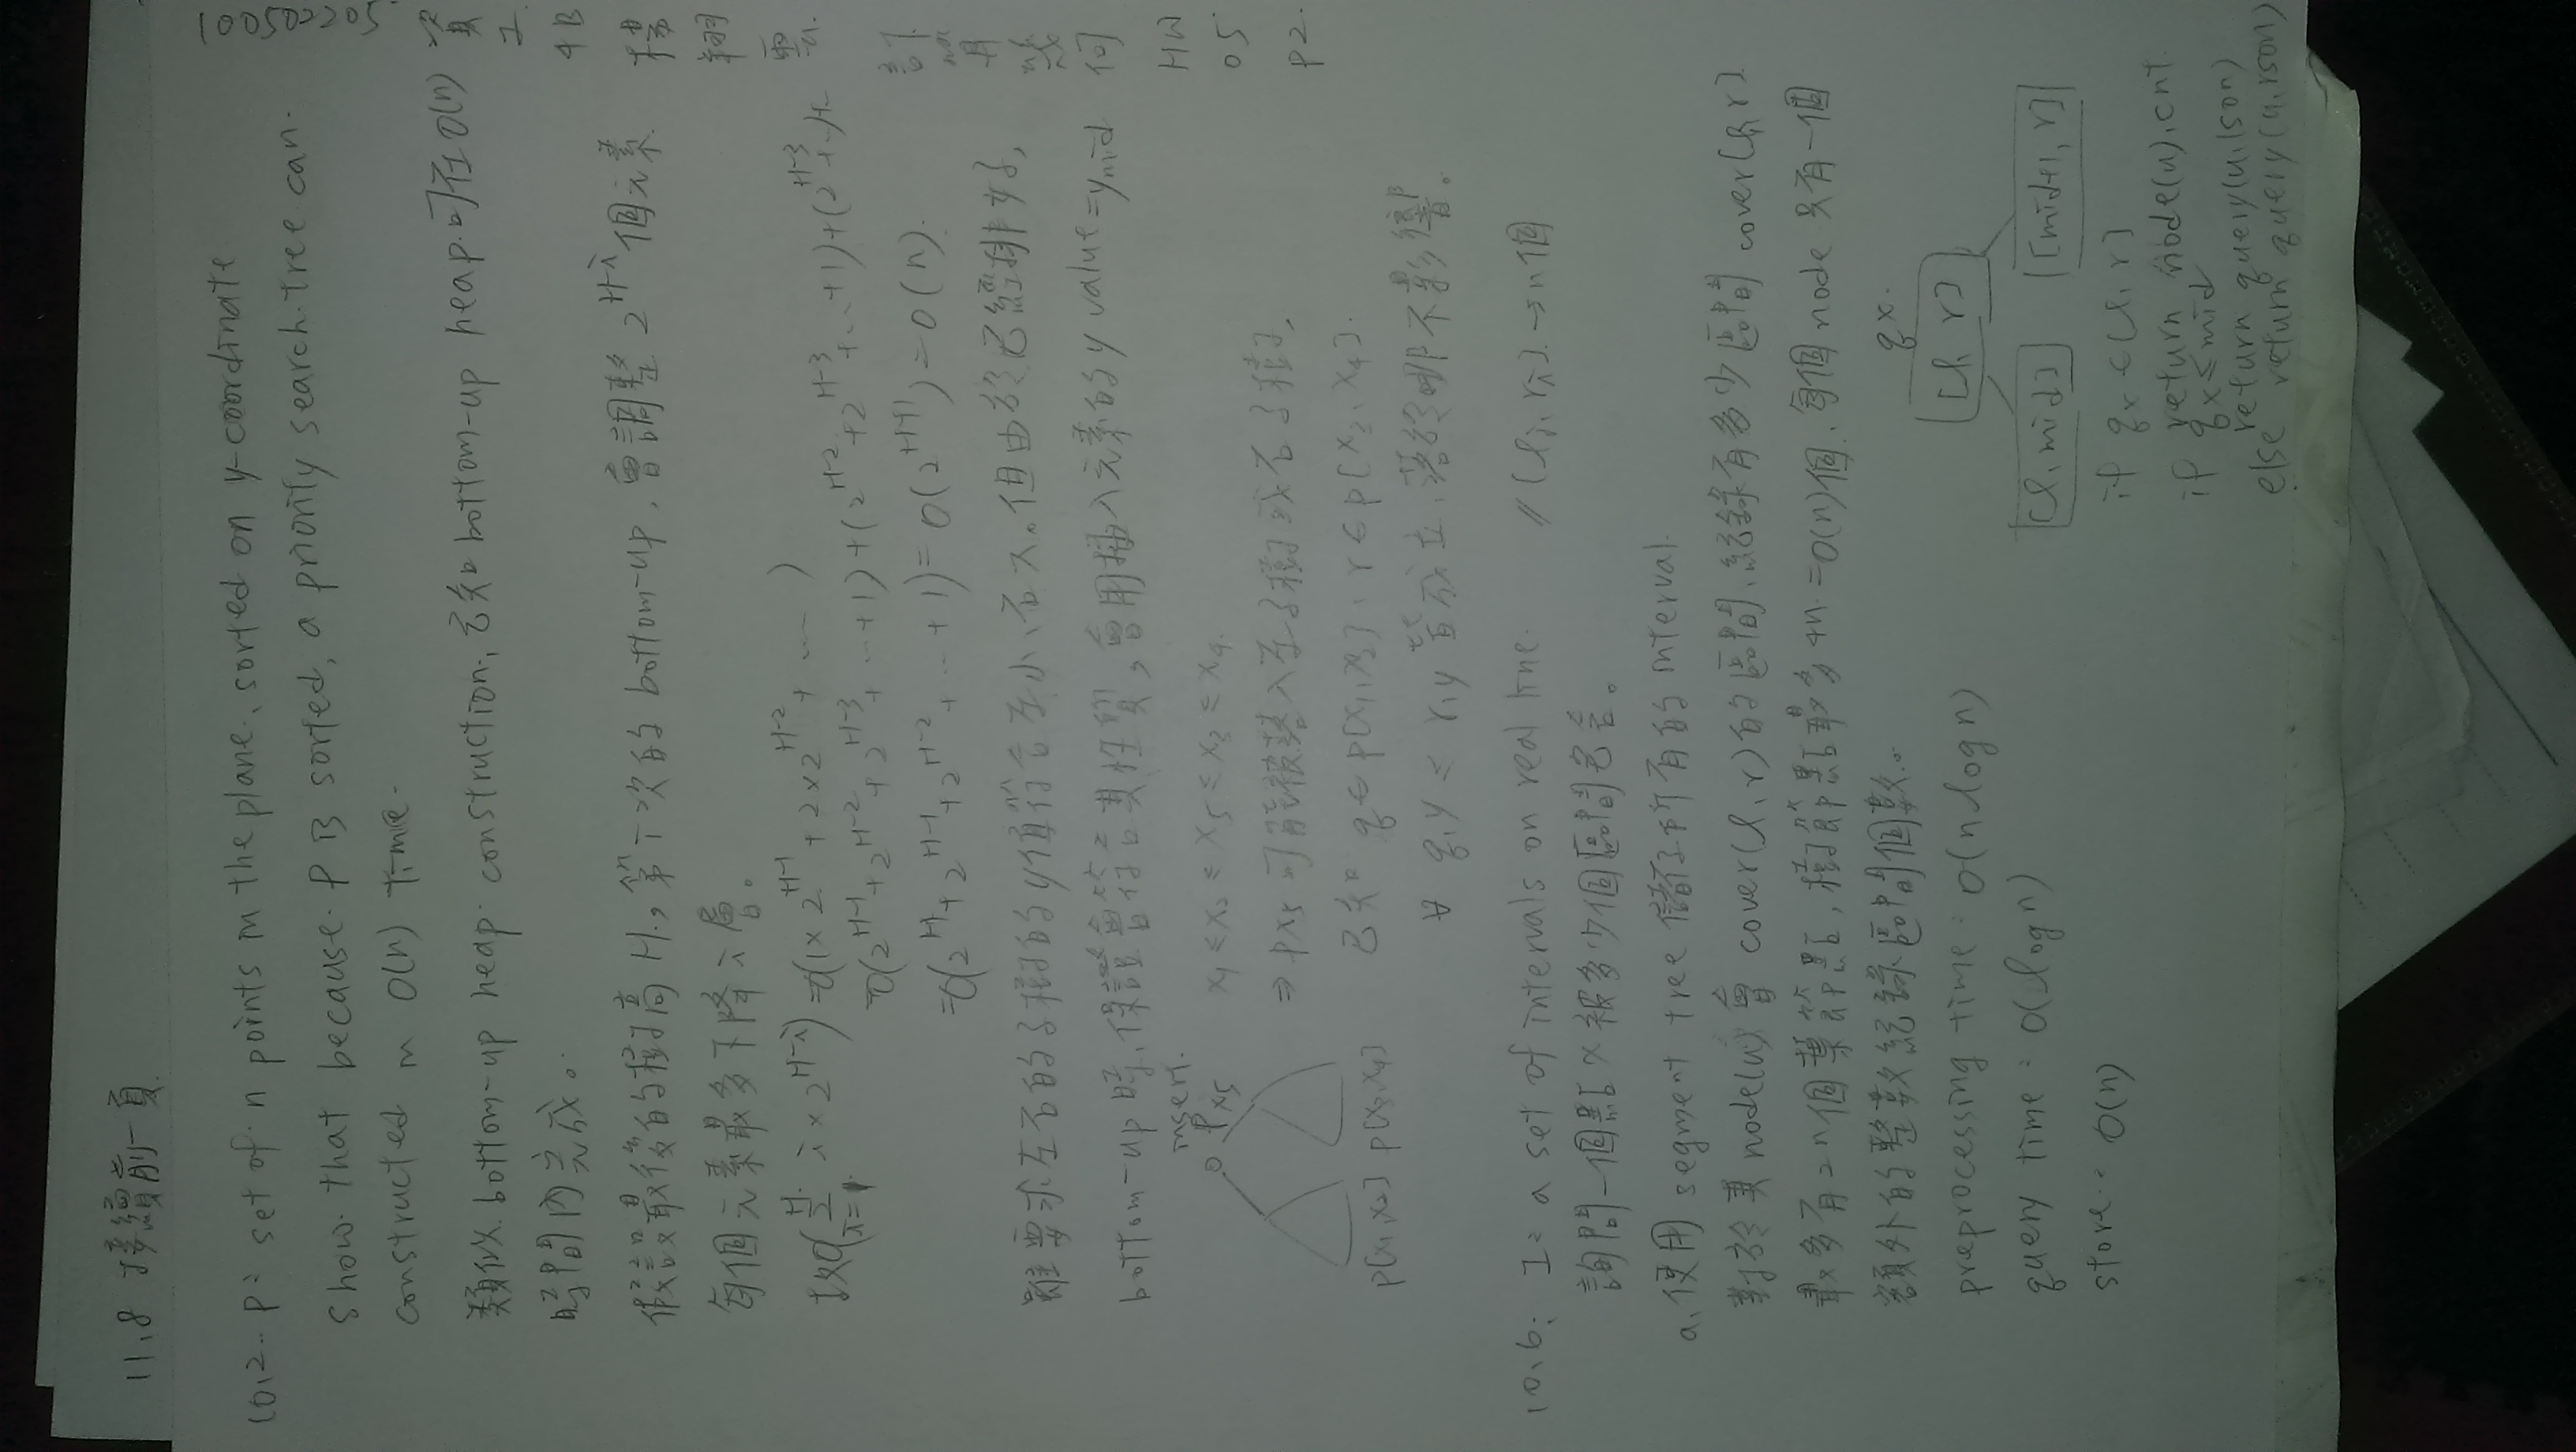 11.8 接續前一頁
100502205 資工4B 楊翔雲 計算幾何 HW 05 P2
10.2. P = set of n points in the plane, sorted on y-coordinate
show that because P is sorted, a priority search tree can
constructed in O(n) time.
類似 bottom-up heap construction, 已知 bottom-up heap 可在 O(n)
時間內完成。
假設最後的樹高 H, 第 i 次的 bottom-up, 會調整 2^{H-i} 個元素
每個元素最多下降 i 層。
故 O(∑_{i=1}^{H} i × 2^{H-i}) = O(1 × 2^{H-1} + 2 × 2^{H-2} + ... )
= O(2^{H-1} + 2^{H-2} + 2^{H-3} + ... + 1) + (2^{H-2} + 2^{H-3} + ... + 1) + (2^{H-3} + ...) + ...
= O(2^H + 2^{H-1} + 2^{H-2} + ... + 1) = O(2^{H+1}) = O(n).
雖要求左右的子樹的 y 值符合左小、右大。但由於已經排好,
bottom-up 時, 保證會符合其性質, 會用插入元素的 y value = y_mid
insert
P_{x5}
x1 ≤ x2 ≤ x5 ≤ x3 ≤ x4
⇒ P_{x5} 可能被裝入左子樹或右子樹,
已知 q ∈ P[x1, x2], r ∈ P[x3, x4].
P[x1, x2] P[x3, x4]
∀ q.y ≤ r.y 皆成立、落於哪不影響。
10.6: I = a set of intervals on real line. // [li, ri] → n個
詢問一個點 x 被多少個區間包含。
a. 使用 segment tree 儲存所有的 interval.
對於其 node(u) 會 cover [l, r) 的區間、紀錄有多少區間 cover [l, r).
最多有 2n 個葉節點, 樹節點最多 4n = O(n) 個、每個 node 只有一個
額外的整數紀錄區間個數。
preprocessing time: O(n log n)
query time: O(log n)
store: O(n)
qx
[l, r]
[l, mid] [mid+1, r]
if qx ∈ [l, r]
return node(u).cnt
if qx ≤ mid
return query(u.lson)
else return query(u.rson)